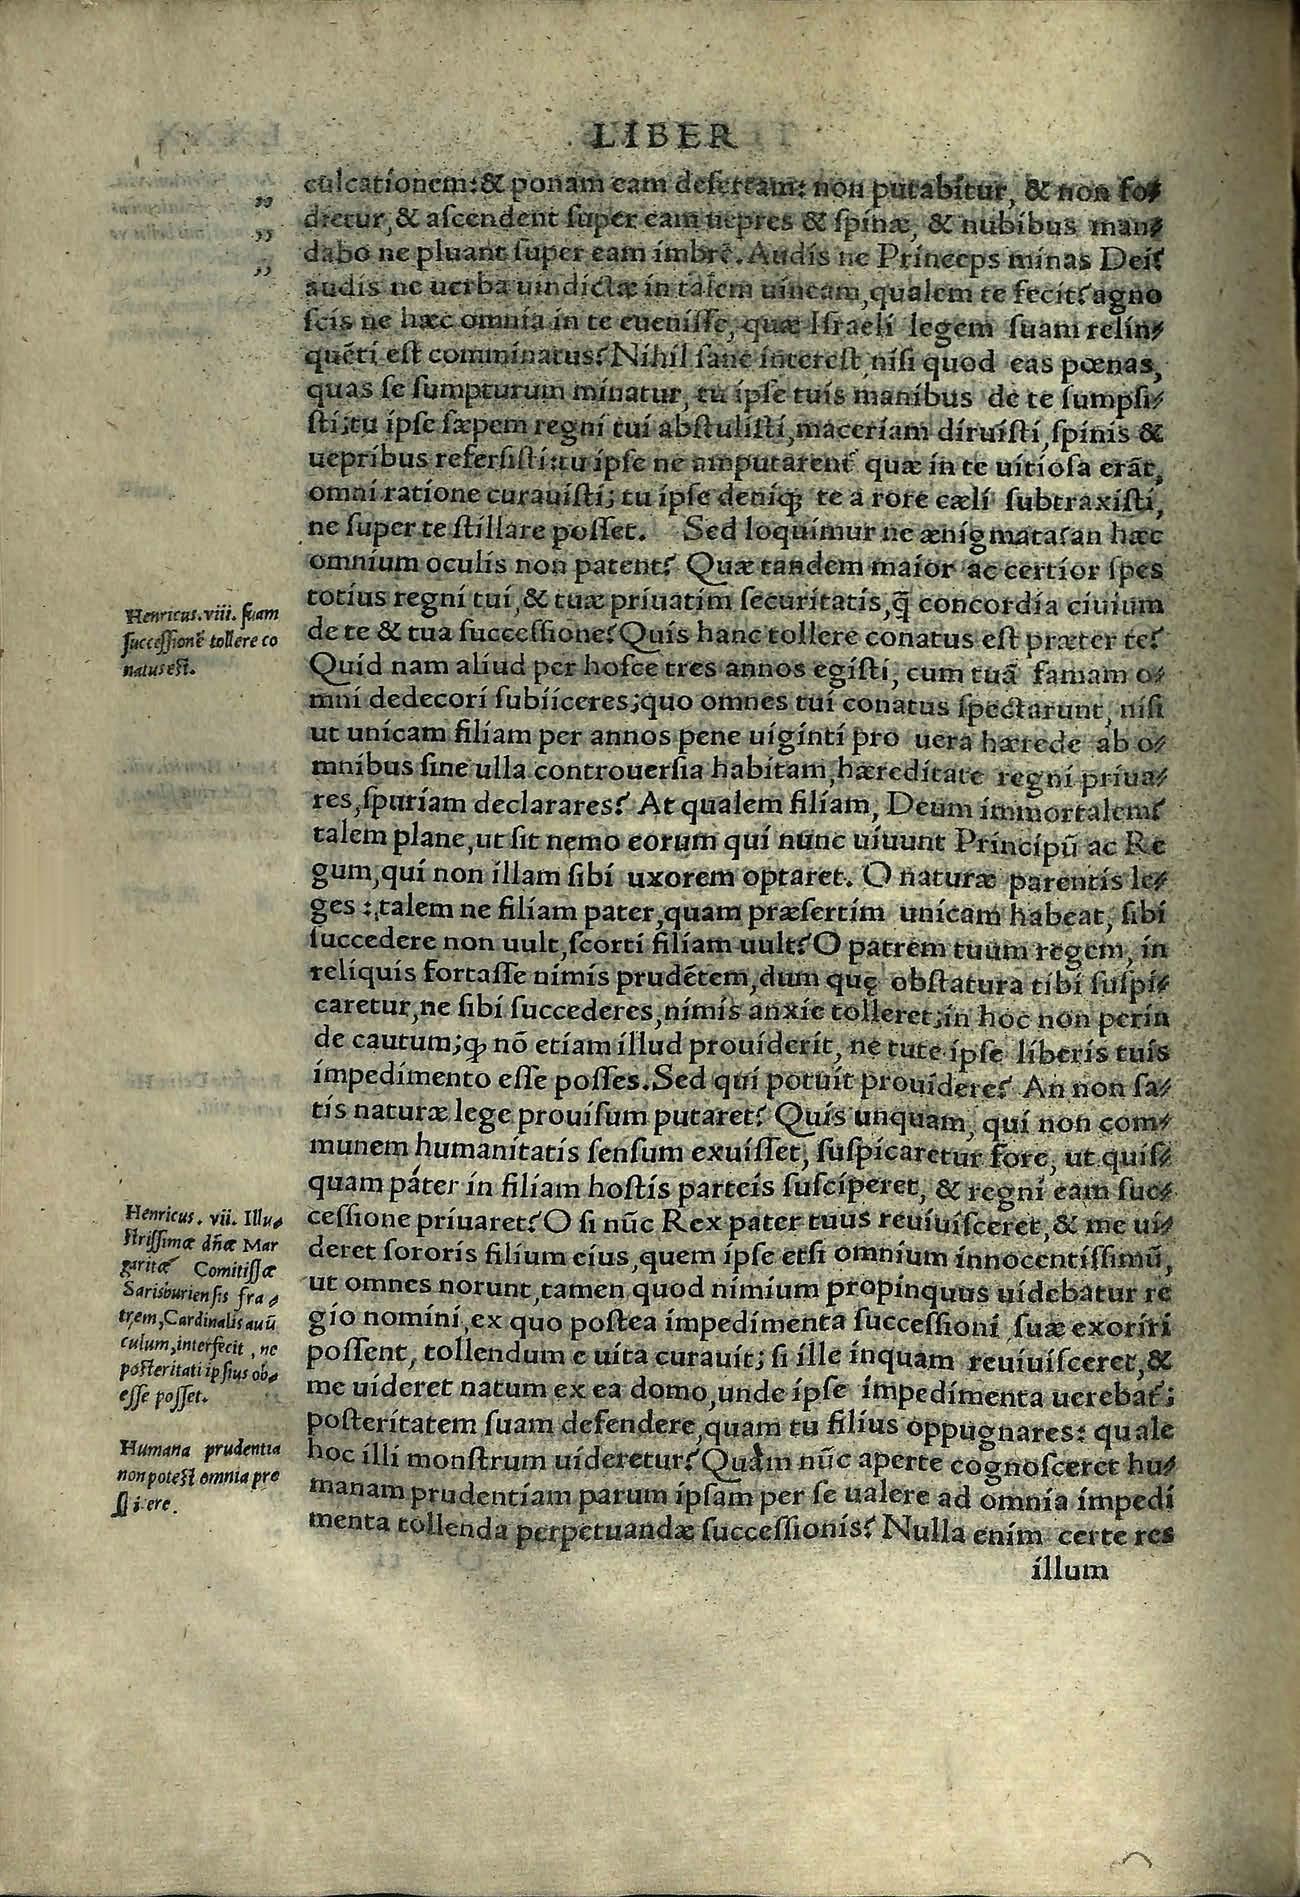 LIBER
culcationem: & ponam eam desertam: non putabitur, & non fo⸗
dietur, & ascendent super eam uepres & spinæ, & nubibus man⸗
dabo ne pluant super eam imbrē. Audis ne Princeps minas Dei?
audis ne uerba uindictæ in talem uineam, qualem te fecit? agno
scis ne hæc omnia in te euenisse, quæ Israeli legem suam relin⸗
quēti est comminatus? Nihil sane interest, nisi quod eas pœnas,
quas se sumpturum minatur, tu ipse tuis manibus de te sumpsi⸗
sti; tu ipse sæpem regni tui abstulisti, maceriam diruisti, spinis &
uepribus refersisti: tu ipse ne amputarent᷑ quæ in te uitiosa erāt,
omni ratione curauisti; tu ipse deniqꝫ te a rore cæli subtraxisti,
ne super te stillare posset. Sed loquimur ne ænigmata? an hæc
omnium oculis non patent? Quæ tandem maior ac certior spes
totius regni tui, & tuæ priuatim securitatis, q̄ concordia ciuium
de te & tua successione? Quis hanc tollere conatus est præter te?
Quid nam aliud per hosce tres annos egisti, cum tuā famam o⸗
mni dedecori subiiceres; quo omnes tui conatus spectarunt, nisi
ut unicam filiam per annos pene uiginti pro uera hærede ab o⸗
mnibus sine ulla controuersia habitam, hæreditate regni priua⸗
res, spuriam declarares? At qualem filiam, Deum immortalem?
talem plane, ut sit nemo eorum qui nunc uiuunt Principū ac Re
gum, qui non illam sibi uxorem optaret. O naturæ parentis le⸗
ges: talem ne filiam pater, quam præsertim unicam habeat, sibi
succedere non uult, scorti filiam uult? O patrem tuum regem, in
reliquis fortasse nimis prudētem, dum quę obstatura tibi suspi⸗
caretur, ne sibi succederes, nimis anxie tolleret; in hoc non perin
de cautum; qꝫ nō etiam illud prouiderit, ne tute ipse liberis tuis
impedimento esse posses. Sed qui potuit prouidere? An non sa⸗
tis naturæ lege prouisum putaret? Quis unquam, qui non com⸗
munem humanitatis sensum exuisset, suspicaretur fore, ut quis⸗
quam páter in filiam hostis parteis susciperet, & regni eam suc⸗
cessione priuaret? O si nūc Rex pater tuus reuiuisceret, & me ui⸗
deret sororis filium eius, quem ipse etsi omnium innocentissimū,
ut omnes norunt, tamen quod nimium propinquus uidebatur re
gio nomini, ex quo postea impedimenta successioni suæ exoriri
possent, tollendum e uita curauit; si ille inquam reuiuisceret, &
me uideret natum ex ea domo, unde ipse impedimenta uerebat᷑;
posteritatem suam defendere, quam tu filius oppugnares: quale
hoc illi monstrum uideretur? Quàm nūc aperte cognosceret hu⸗
manam prudentiam parum ipsam per se ualere ad omnia impedi
menta tollenda perpetuandæ successionis? Nulla enim certe res
illum
Henricus. viii. suam
successionē tollere co
natus est.
Henricus. vii. Illu⸗
strissimæ dñæ Mar
garitæ Comitissæ
Sarisburiensis fra⸗
trem, Cardinalis auū
culum, interfecit, ne
posteritati ipsius ob⸗
esse posset.
Humana prudentia
non potest omnia pro
ere.